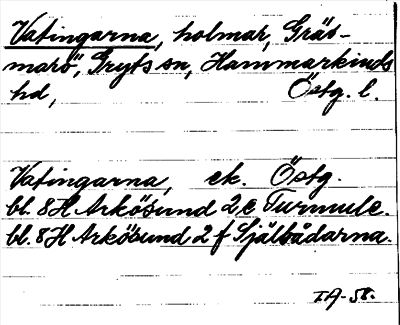 Vatingarna, holmar, Gräs-
marö, Gryts sn, Hammarkinds
hd, Östg. l.
Vatingarna, ek. Östg.
bl. 8H Arkösund 2 e Turmule.
bl. 8H Arkösund 2 f Själbådarna.
IA-58.